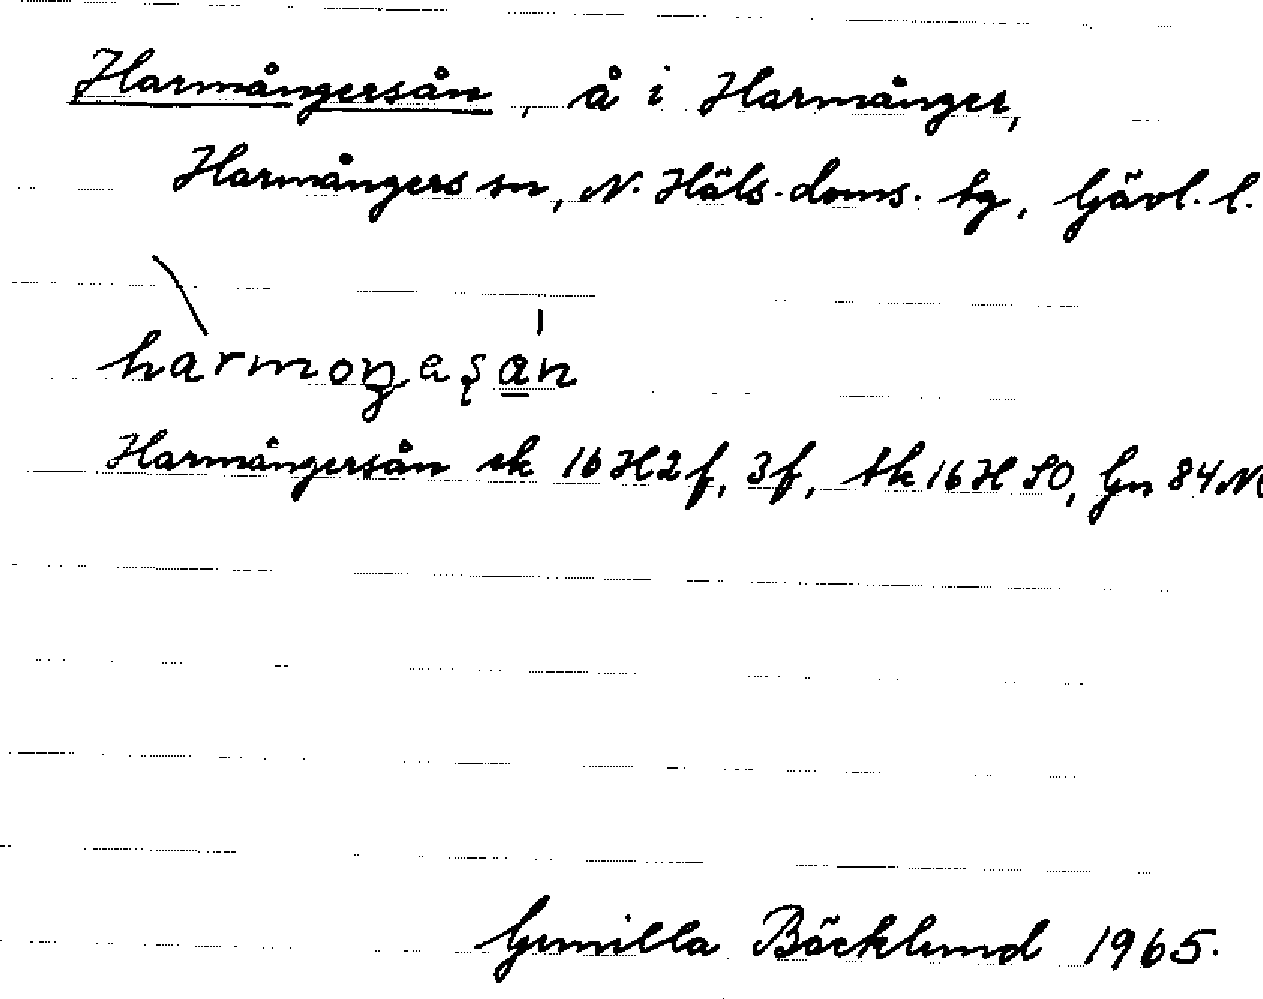 Harmångersån, å i Harmånger,
Harmångers sn, N. Häls. doms. tg, Gävl. l.
harmoŋeşa̲n
Harmångersån ek 16H2f, 3f, tk 16H SO, Gn 84 N
Gunilla Bäcklund 1965.